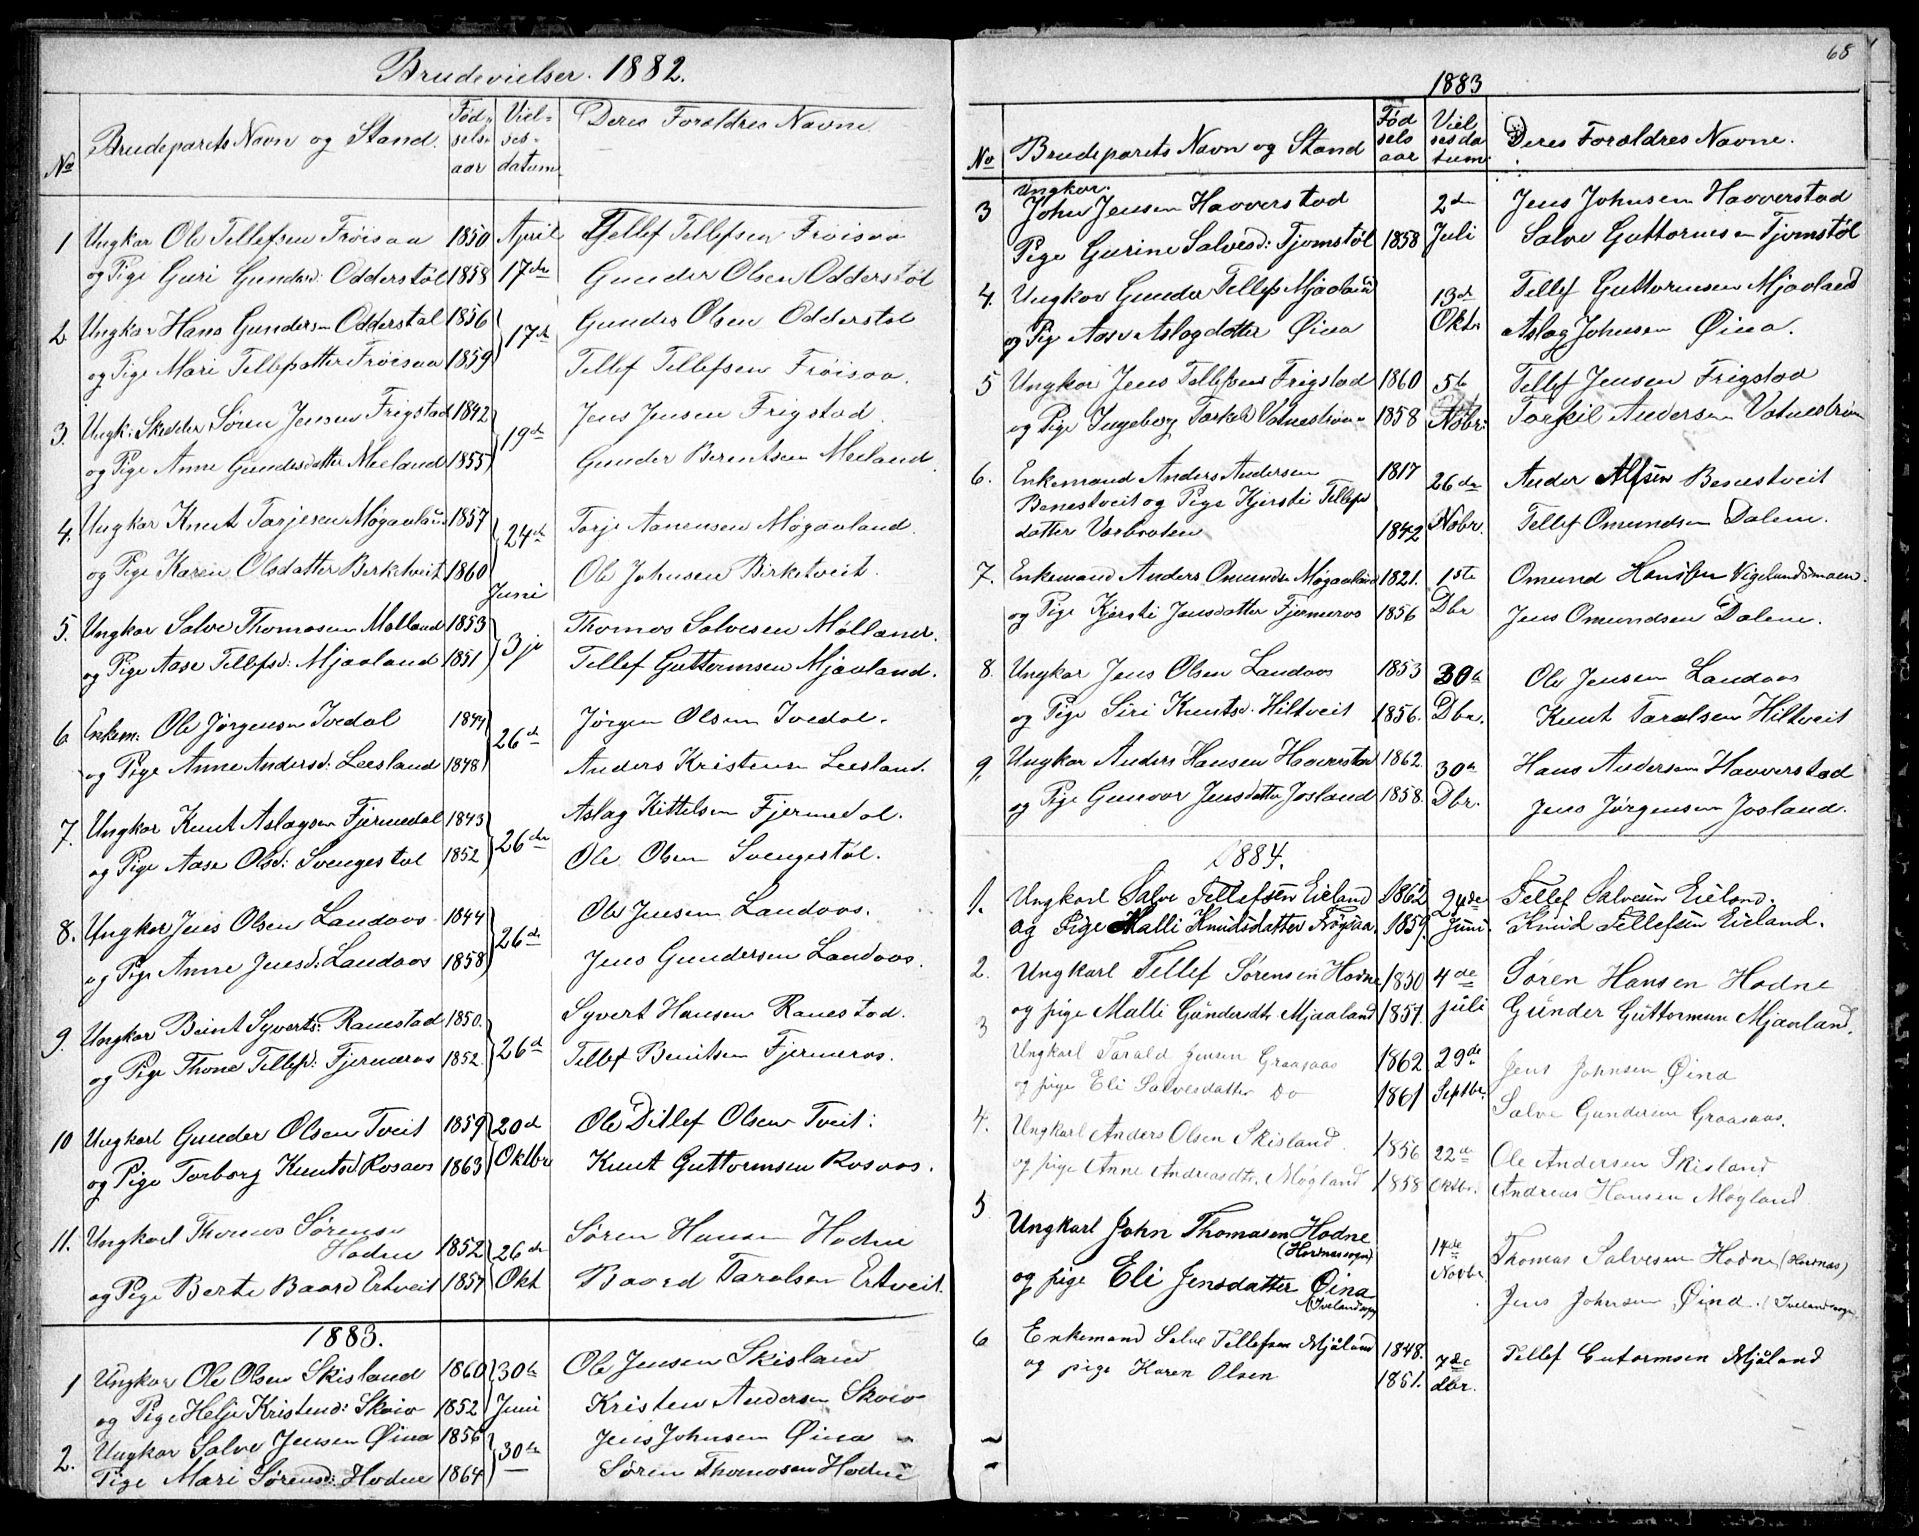 Brudevielser. 1882.
No Brudeparets Navn og Stand. Fødselsaar Vielsesdatum Deres Forældres Navne.
1 Ungkar Ole Tellefsen Frøisaa 1850 April Tellef Tellefsen Frøisaa
og Pige Guri Gundersd: Odderstøl 1858 17de Gunder Olsen Odderstøl
2 Ungkar Hans Gundersen Odderstøl 1856 17de Gunder Olsen Odderstøl
og Pige Mari Tellefsdatter Frøisaa 1859 Tellef Tellefsen Frøisaa.
3. Ungk: Skredder Søren Jensen Frigstad 1842 19de Jens Jensen Frigstad.
og Pige Anne Gundersdatter Meeland 1855 Gunder Berentsen Meiland.
4. Ungkar Knut Tarjesen Møgaaland 1857 24de Tarje Aanensen Møgaaland.
og Pige Karen Olsdatter Birketveit 1860 Ole Johnsen Birketveit.
Juni
5. Ungkar Salve Thomasen Mølland 1853 3je Thomas Salvesen Mølland.
og Pige Aase Tellefsd: Mjaaland 1851 Tellef Guttormsen Mjaaland.
6 Enkem: Ole Jørgensen Ivedal 1844 26de Jørgen Olsen Ivedal.
og Pige Anne Andersd: Leesland 1848 Anders Kristensen Leesland.
7. Ungkar Knut Aslagsen Fjermedal 1843 26de Aslag Kittelsen Fjermedal.
og Pige Aase Olsd: Svengestøl 1852 Ole Olsen Svengestøl.
8. Ungkar Jens Olsen Landaas 1844 26de Ole Jensen Landaas.
og Pige Anne Jensd: Landaas 1858 Jens Gundersen Landaas.
9. Ungkar Beint Syverts: Ranestad 1850. 26de Syvert Hansen Ranestad.
og Pige Thone Tellefsd: Fjermeros 1852. Tellef Beintsen Fjermeros.
10 Ungkarl Gunder Olsen Tveit 1859 20de Ole Ditlef Olsen Tveit:
og Pige Torborg Knutsd Rosaas 1863 Oktbr Knut Guttormsen Rosaas.
11. Ungkarl Thomas Sørensen
Hodne 1852 26de Søren Hansen Hodne
og Pige Berte Baards Ertveit 1857 Okt Baard Taralsen Ertveit.
1883.
1 Ungkar Ole Olsen Skisland 1860 30te Ole Jensen Skisland
og Pige Helje Kristensd: Skeie 1852 Juni Kristen Andersen Skeie
2. Ungkar Salve Jensen Øina 1856 30te Jens Johnsen Øina
Pige Mari Sørensd: Hodne 1864 Søren Thomasen Hodne
68
1883
No Brudeparets Navn og Stand Fødselsaar Vielsesdatum Deres Forældres Navne.
Ungkar.
3 John Jensen Haverstad 2den Jens Johnsen Haverstad
Pige Gurine Salvesd: Tjomstøl 1858 Juli Salve Guttormsen Tjomstøl
4. Ungkar Gunder Tellefs Mjaaland 13de Tellef Guttormsen Mjaaland
og Pig Aase Aslagdatter Øina Oktr Aslag Johnsen Øina.
5 Ungkar Jens Tellefsen Frigstad 1860 5te Tellef Jensen Frigstad
og Pige Ingeborg Torkelsd Vatnestrøm 1858 Nobr: Torkil Andersen Vatnestrøm
6. Enkemand Anders Andersen 1817 26de Ander Alfsen Benestveit
Benestveit og Pige Kjersti Tellefs
datter Vasbroten 1842 Nobr. Tellef Omundsen Dalene.
7. Enkemand Anders Omunds Møgaaland 1821. 1ste Omund Hansen Vigelandsmoen.
og Pige Kjersti Jensdatter Fjermeros 1856 Dbr Jens Omundsen Dalene.
8. Ungkar Jens Olsen Landaas 1853 30te Ole Jensen Landaas
og Pige Siri Knutsd. Hiltveit 1856. Dbr. Knut Taralsen Hiltveit
9 Ungkar Anders Hansen Haverstad 1862. 30te Hans Andersen Haverstad
og Pige Gunvor Jensdatter Josland 1858. Dbr. Jens Jørgensen Josland.
1884.
1. Ungkarl Salve Tellefsen Eieland 1862 24de Tellef Salvesen Eieland.
og Pige Malli Knudsdatter Frøysaa. 1859. Juni. Knud Tellefsen Eieland.
2. Ungkarl Tellef Sørensen Hodne 1850 4de Søren Hansen Hodne
og pige Malli Gundersdtr Mjaaland 1857. juli Gunder Guttormsen Mjaaland.
3 Ungkarl Tarald Jensen Graasaas 1862 29de Jens Johnsen Øina
og pige Eli Salvesdatter Do 1861 Septbr. Salve Gundersen Graasaas.
4. Ungkarl Anders Olsen Skisland 1856 22de Ole Andersen Skisland
og pige Anne Andreasdtr. Møgland 1858 Oktbr. Andreas Hansen Møgland.
5 Ungkarl John Thomasen Hodne
(Hornessogn) 14de Thomas Salvesen Hodne (Hornæs)
Novbr.
og pige Eli Jensdatter Øina
(Ivelandsogn) Jens Johnsen Øina. (Ivelandsogn
6 Enkemand Salve Tellefsen Mjåland 1848. 7de Tellef Gutormsen Mjåland
og pige Karen Olsen 1851. dbr.